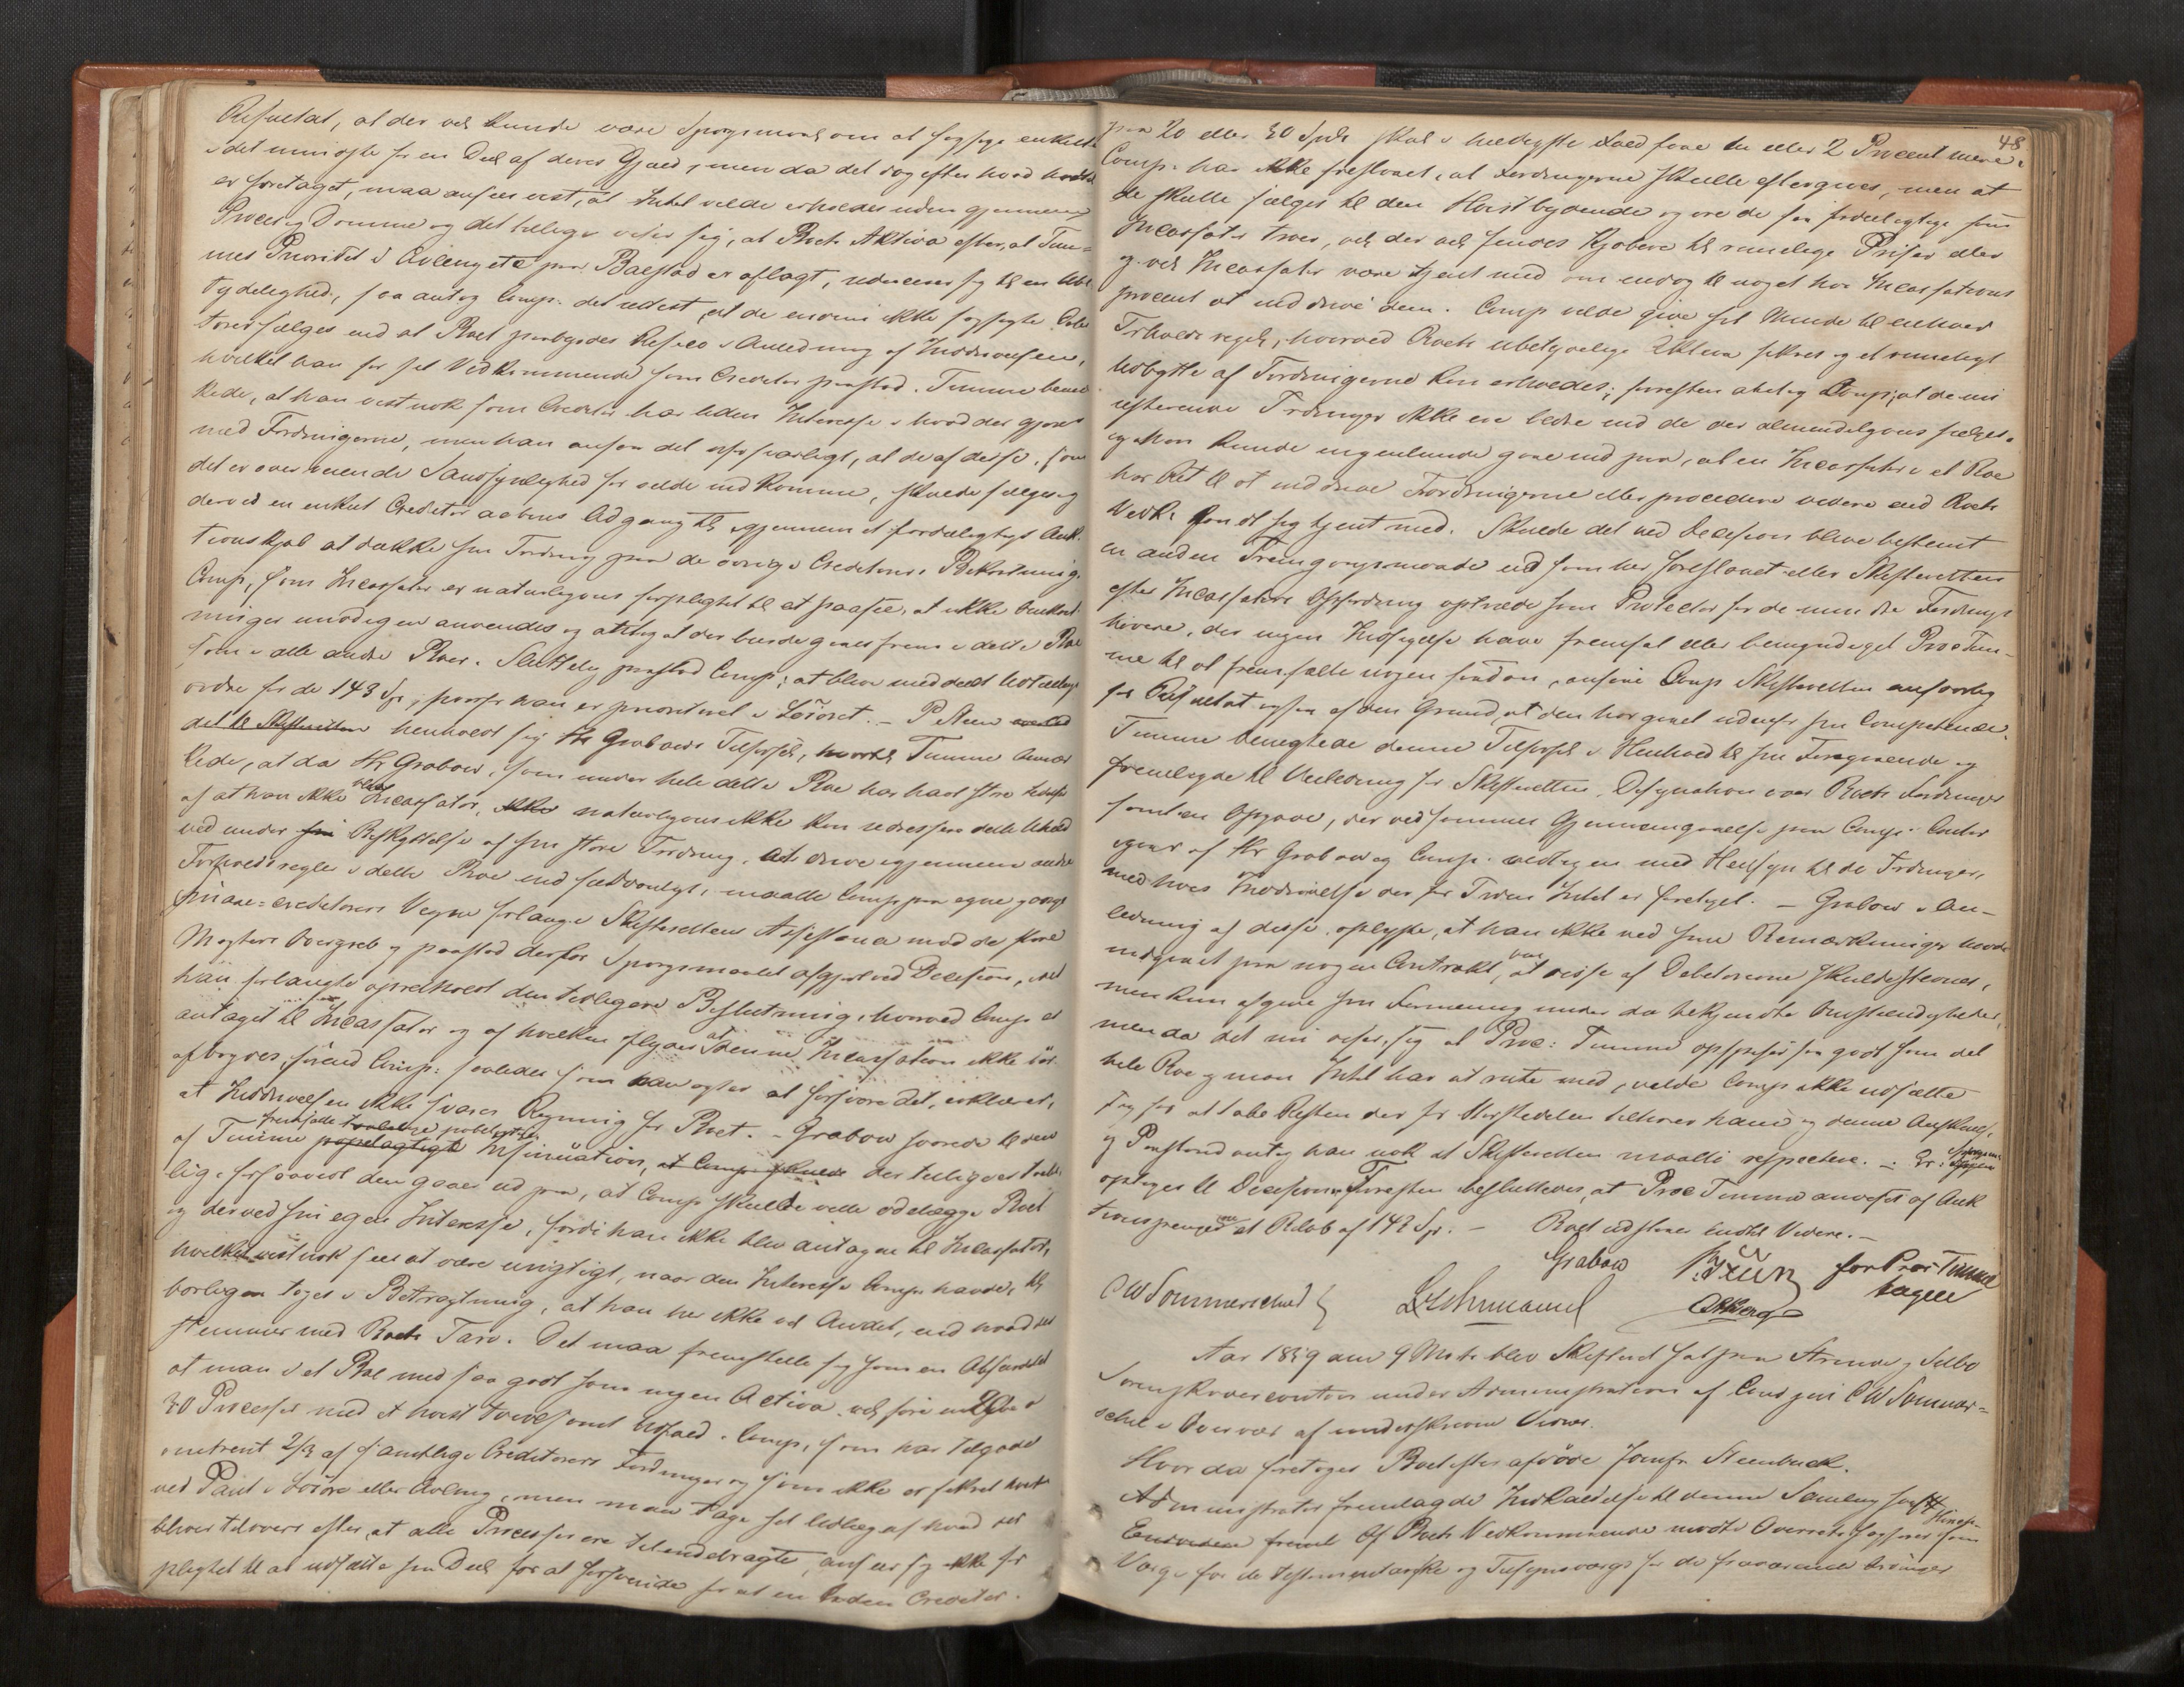 Resultat, at der vel kunde være Spørgsmaal om at sagsøge enkelte
i det mindste for en Deel af deres Gjæld, men da det dog efter hvad
er foretaget, maa ansees vist, at Intet vilde erholdes uden gjennem
Proces og Domme og det tillige viser sig, at Boets Aktiva efter at Tim=
mes Prioritet i Avlingen paa Bakstad er aflagt, reducerer sig til en Ube=
tydelighed, saa antog Comp. det rettest, at de endnu ikke sagsøgte
sælges end at Boet paabyrdes Risico i Anledning af Inddrivelsen,
hvilket han for sit Vedkommende som Creditor paastod. Timme bemær=
kede, at han vistnok som Creditor har liden Interesse i hvad der gjøres
med Fordringerne, men han ansaa det uforsvarligt, at de af disse, som
det er overveiende Sandsynlighed for vilde indkomme, skulde sælges og
derved en enkelt Creditor aabnes Adgang til igjennem et fordelagtigt Auk=
tionskjøb at dække sin Fordring paa de øvrige Creditorers Bekostning.
Comp, som Incassator er naturligviis forpligtet til at paasee, at ikke Omkost=
ninger unødigen anvendes og antog at der burde gaaes frem i dette Boe
som i alle andre Boer. Sluttelig paastod Comp; at blive meddeelt Udtællings
ordre for de 143 Sp, hvorfor han er prioriteret i Løsøret. – P Steen
det til Skifteretten henholdt sig til Grabows Tilførsel, hvortil Timme bemær
kede, at da Hr Grabow, som under hele dette Boe har havt stor
af at han ikke blev Incassator, ikke naturligviis ikke kan
ved under sin Beskyttelse af sin store Fordring, at drive igjennem andre
Forholdsregler i dette Boe end sædvanligt, maatte Comp paa egne og øvrige
smaae=creditorers Vegne forlange Skifterettens Assistance mod de store
Magters Overgreb og paastod derfor Spørgsmaalet afgjort ved Decision, idet
han forlangte opretholdt den tidligere Beslutning, hvorved Comp er
antaget til Incassator og af hvilken flyder at denne Incassation ikke bør
afbrydes, førend Comp: saaledes som han agter at forsvare det, erklærer,
at Inddrivelsen ikke svarer Regning for Boet. – Grabow svarede til den
af Timme fremsatte pøbelagtige Insinuation, at Comp skulde der tillige er
lig, forsaavidt den gaaer ud paa, at Comp skulde ville ødelægge Boet
og derved sin egen Interesse, fordi han ikke blev antagen til Incassator,
hvilket vistnok sees at være urigtigt, naar den Interesse Comp havde, til
børligen tages i Betragtning, at han her ikke vil Andet, end hvad der
stemmer med Boets Tarv. Det maa fremstille sig som en Absurditet
at man i et Boe med saa godt som ingen Activa, vil føre en 20 a
30 Processer med et høist tvivlsomt Udfald. Comp, som har Tilgode
omtrent 2/3 af samtlige Creditorers Fordringer og som ikke er sikret
ved Pant i Løsøre eller Avling, men maa tage sit Udlæg af hvad der
bliver tilovers efter, at alle Processer ere tilendebragte, anseer sig ikke for
pligtet til at udsætte sin Deel for at forsvinde for at en anden Creditor

48
paa 20 eller 30 Spd. skal i heldigste Fald faae en eller 2 Procent mere.
Comp. har ikke foreslaaet, at Fordringerne skulle eftergives, men at
de skulle sælges til den Høistbydende og ere de saa fordelagtige som
Incassator troer, vil der vel findes Kjøbere til rimelige Priser eller
og vil Incassator være tjent med om endog til noget høi Incassations
procent at inddrive dem. Comp vilde give sit Minde til enhver
Forholdsregel, hvorved Boets ubetydelige Aktiva sikres og et rimeligt
Udbytte af Fordringerne kan erholdes; forresten antog Comp, at de
Fordringer ikke ere bedre end de der almindeligviis sælges.
og Man kunde ingenlunde gaae ind paa, at en Incassator i et Boe
har Ret til at inddrive Fordringerne eller procedere videre end Boets
Vedk. fandt sig tjent med. Skulde det ved Decision blive bestemt
en anden Fremgangsmaade end som her foreslaaet eller Skifteretten
efter Incassators Opfordring optræde som Protector for de mindre Fordrings
havere, der ingen Indsigelse have fremsat eller bemyndiget Proc Tim=
me til at fremsætte nogen saadan, ansaae Comp Skifteretten ansvarlig
for Resultatet ogsaa af den Grund, at den har gaaet udenfor sin Competence.
Timme benegtede denne Tilførsel i Henhold til sin Foregaaende og
fremlagde til Veiledning for Skifteretten, Designation over Boets Fordringer
samt en Opgave, der ved sammes Gjennemgaaelse paa Comp. Contor
igaar af Hr Grabow og Comp. vedtagen med Hensyn til de Fordringer,
med hvis Inddrivelse der for Tiden Intet er foretaget. – Grabow i An=
ledning af disse, oplyste, at han ikke ved sine Bemærkninger havde
indgaaet paa nogen Contrakt, at visse af Debitorerne skulde stevnes,
men kun afgivet sin Formening under da bekjendte Omstændigheder,
men da det nu viser sig at Proc: Timme opspiser saa godt som det
hele Boe og man Intet har at rutte med, vilde Comp ikke udsætte
sig for at tabe Resten der for Størstedelen tilhører ham og denne Anskuelse
og Paastand antog han nok at Skifteretten maatte respectere. –
optages til Decision. Forresten besluttedes, at Proc Timme anvises af Auk
tionspengene et Beløb af 143 Sp. – Boet udstaaer indtil Videre. –
Grabow P. Steen for Procr Timme
Hagen
CWSommerschield Lehmann

Aar 1859 den 9 Mrts blev Skifteret sat paa Strinde og Selbo
Sorenskrivercontor under Administration af Cand juri C W Sommer=
schield i Overvær af underskrevne Vidner.
Hvorda foretoges Boet efter afdøde Jomfr Steenbuck.
Administrator fremlagde Indkaldelse til denne Samling
Af Boets Vedkommende mødte Overretssagfører som
Værge for de testamentariske og Tilsynsværge for de fraværende Arvinger